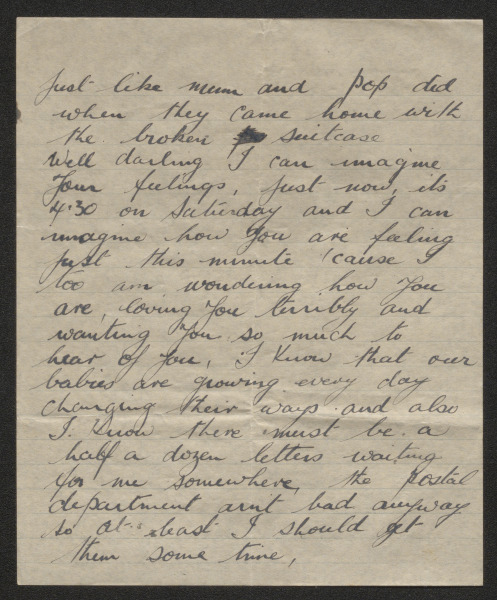 just like mum and Pop did
when they came home with
the broken suitcase
Well darling I can imagine
your feelings, just now, it's
4.30 on Saturday and I can
imagine how you are feeling
just this minute 'cause I
too am wondering how you
are, loving you terribly and
wanting you so much to
hear of you, I know that our
babies are growing every day
changing their ways and also
I know there must be a
half a dozen letters waiting
for me somewhere, the postal
department arn't bad anyway
so at least I should get
them some time,